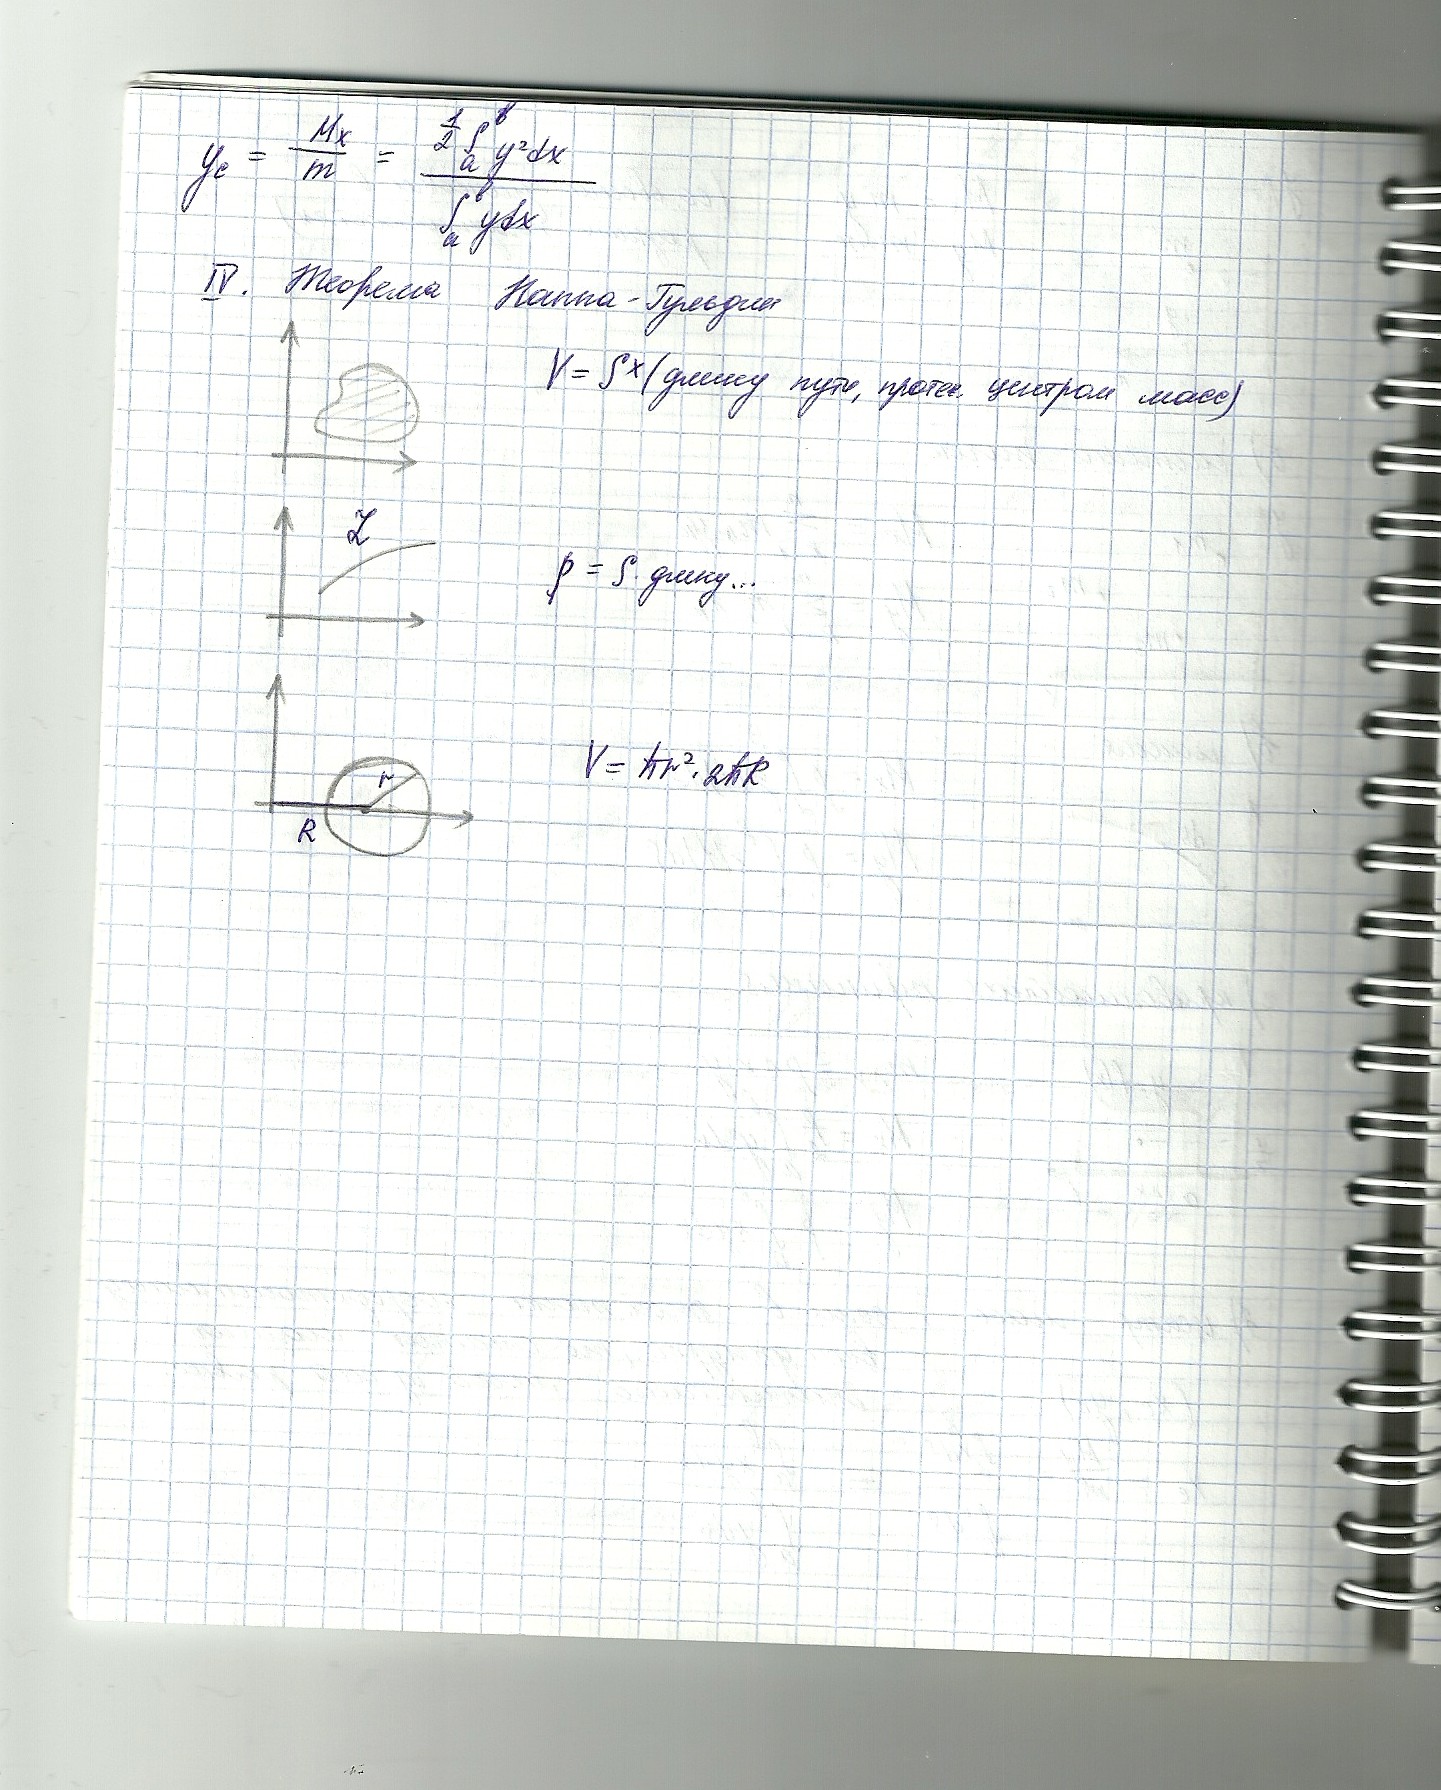 y_c = Mx/m = 1/2 ∫_a^b y² dx / ∫_a^b y dx
IV. Теорема Наппа-Гульдин
V = S × (длину пути, протек. центром масс)
L
p = S · длину...
r
V = πr² · 2πR
R